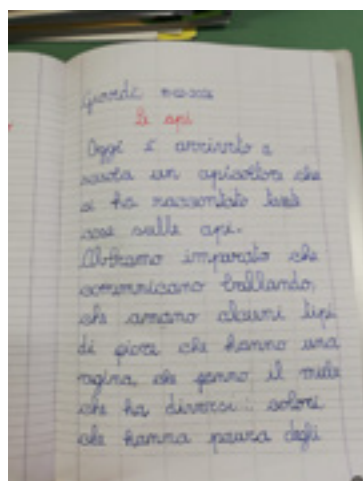 Le api
Oggi è arrivato a
scuola un apicoltore che
ci ha raccontato tante
cose sulle api.
Abbiamo imparato che
comunicano ballando,
che amano alcuni tipi
di fiori che hanno una
regina, che fanno il miele
che ha diversi colori
che hanno paura degli